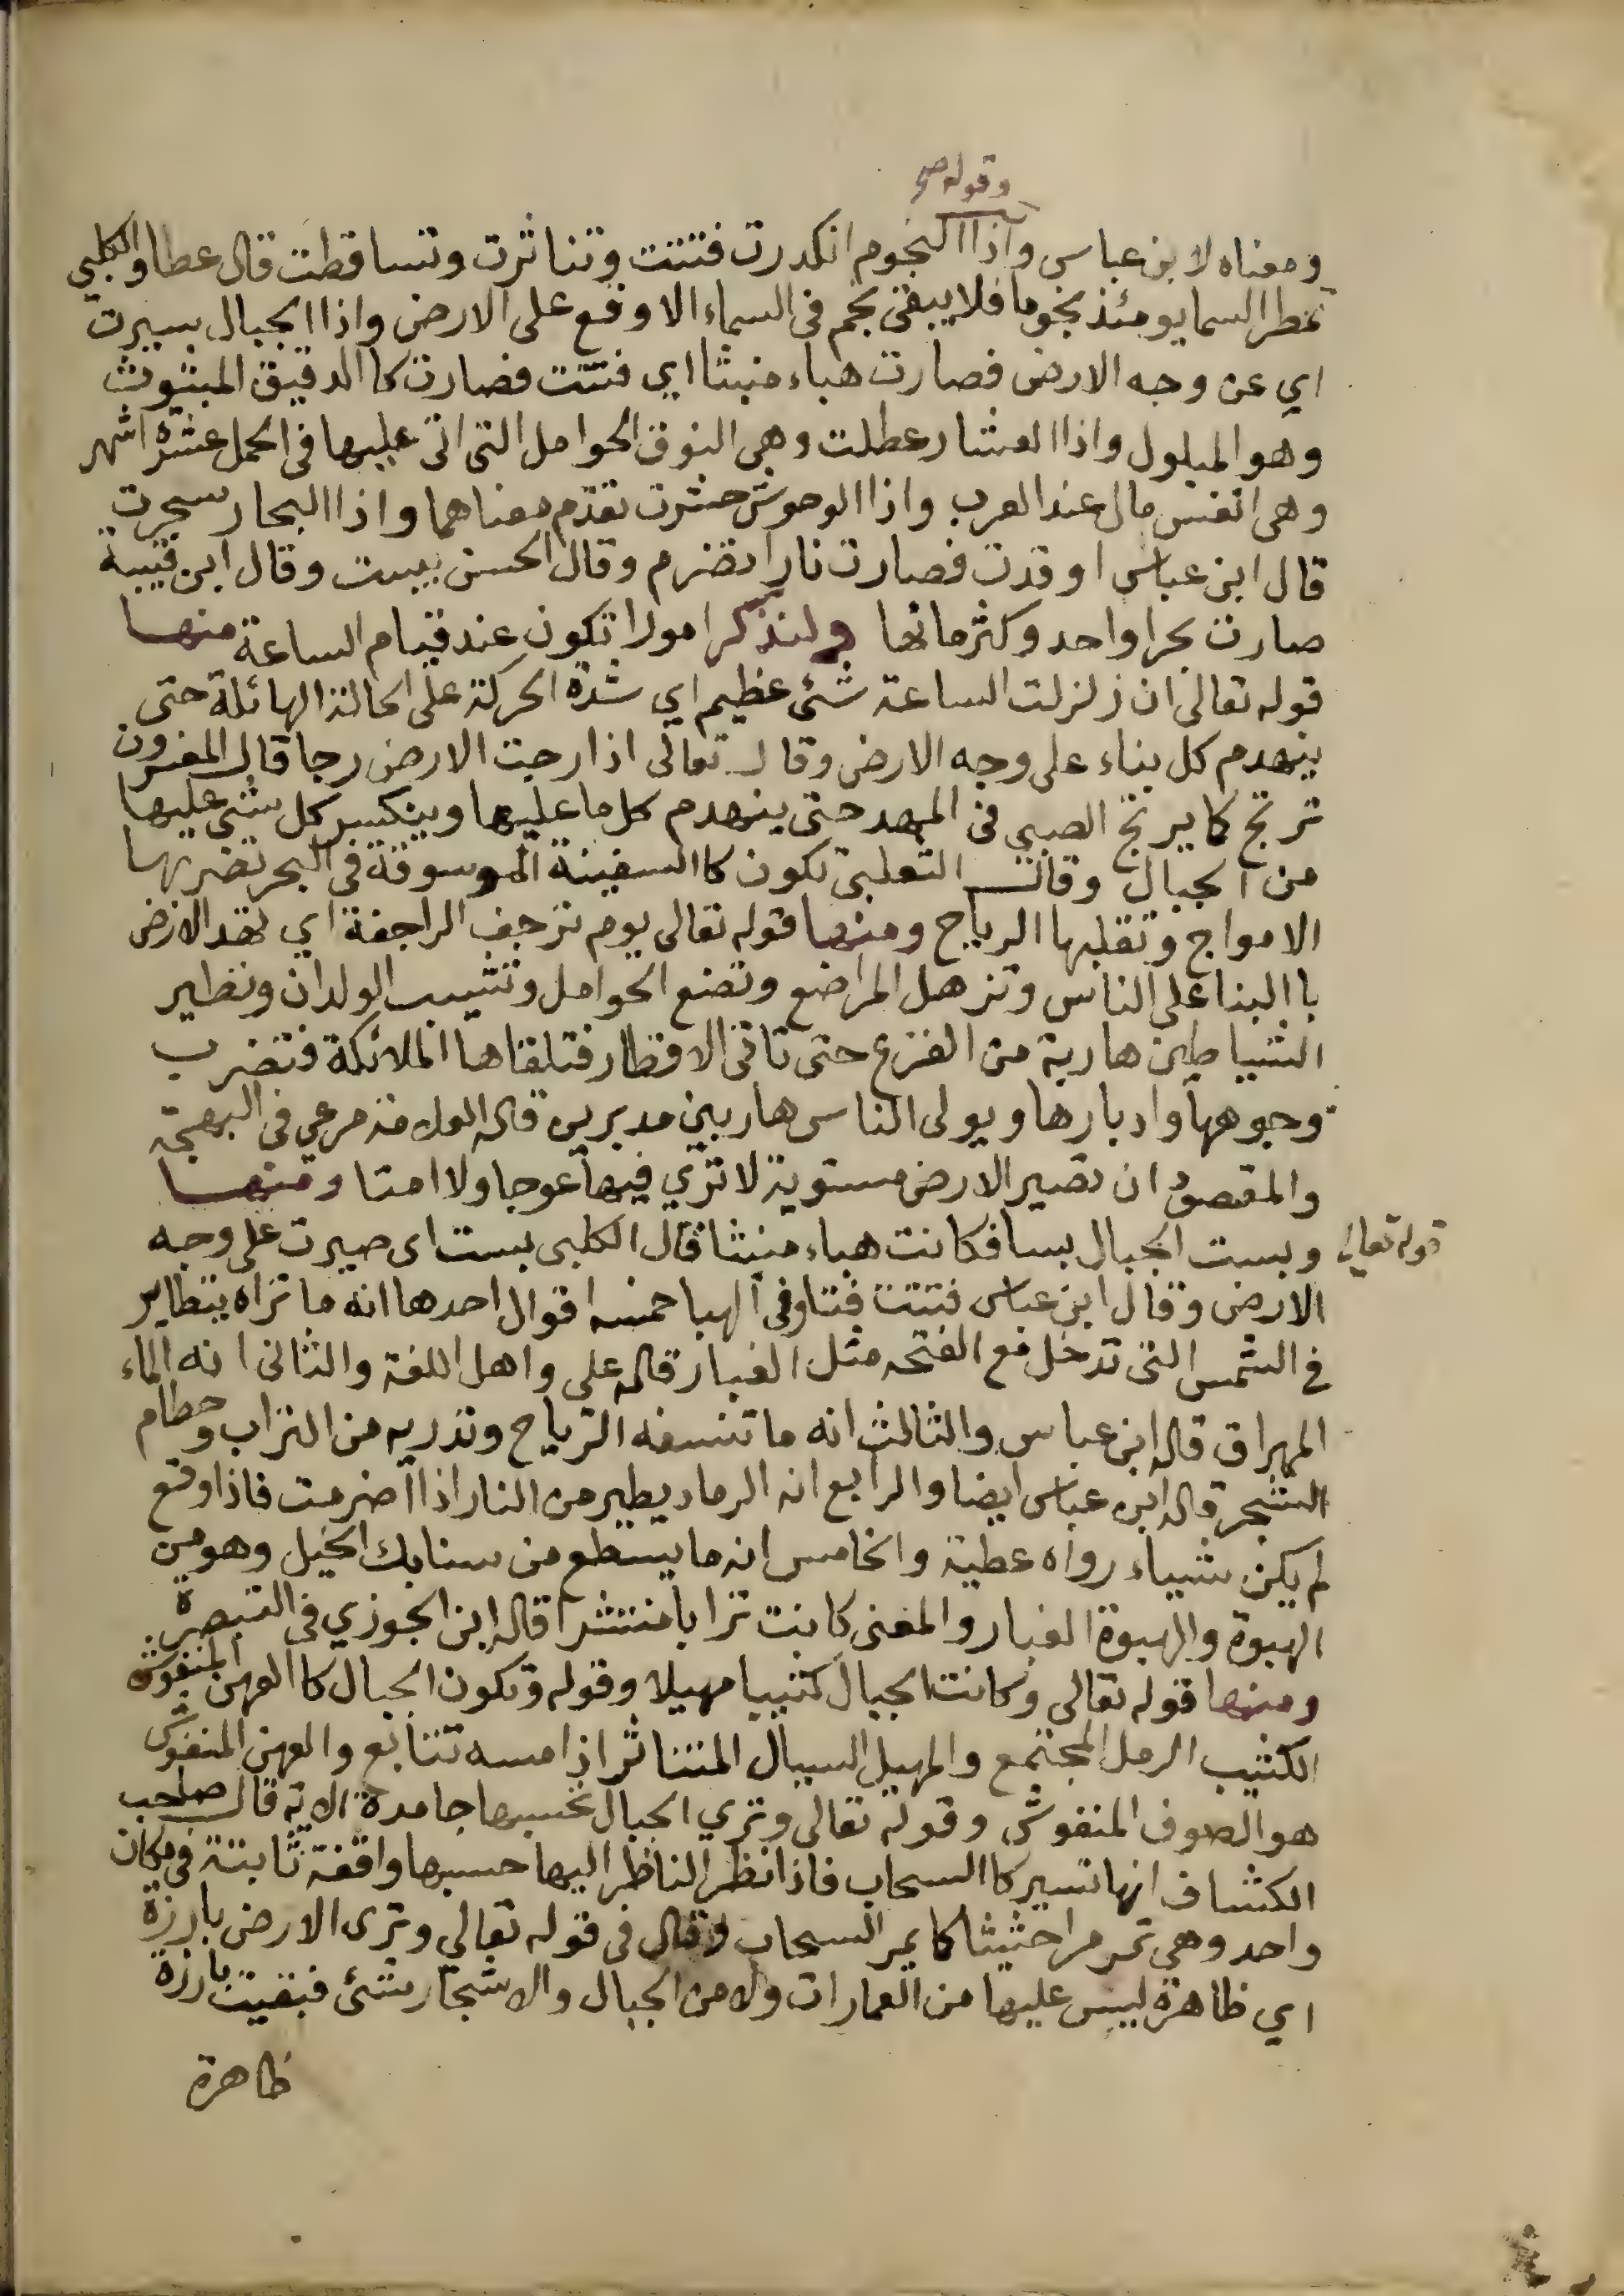 وقوله صح
ومعناه لابن عباس واذا النجوم انكدرت فتتت وتناثرت وتساقطت قال عطا والكلبي
تمطر السما يومئذ نجوما فلا يبقى نجم فى السماء الا وقع على الارض واذا الجبال سيرت
اي عن وجه الارض فصارت هباء منبثا اي فتتت فصارت كا الدقيق المبثوث
وهو المبلول واذا العشار عطلت وهى النوق الحوامل التى اتى عليها فى الحمل عشرة اشهر
وهى انفس مال عند العرب واذا الوحوش حشرت تقدم معناهما واذا البحار سجرت
قال ابن عباس اوقدت فصارت نارا تضرم وقال الحسن يبست وقال ابن قتيبة
صارت بحرا واحد وكثر مائها ولنذكر امورا تكون عند قيام الساعة منها
قوله تعالى ان زلزلت الساعة شئ عظيم اي شدة الحركة على الحالة الهائلة حتى
ينهدم كل بناء على وجه الارض وقال تعالى اذا رجت الارض رجا قال المفسرون
ترتج كما يرتج الصبي فى المهد حتى ينهدم كل ما عليها وينكسر كل شئ عليها
من الجبال وقال الثعلبى تكون كا السفينة الموسوقة فى البحر تضربها
الامواج وتقلبها الرياح ومنها قوله تعالى يوم ترجف الراجفة اي تهد الارض
با البنا على الناس وتزهل المراضع وتضع الحوامل وتشيب الولدان وتطير
الشياطين هاربة من الفزع حتى تاتى الاقطار فتلقاها الملائكة فتضرب
وجوهها وادبارها ويولى الناس هاربين مدبرين قاله العلامة مرعي فى البهجة
والمقصود ان تصير الارض مستوية لا تري فيها عوجا ولا امتا ومنها
قوله تعالى وبست الجبال بسا فكانت هباء منبثا قال الكلبى بست اى صيرت على وجه
الارض وقال ابن عباس فتتت فتا وفى الهبا خمسه اقوال احدها انه ما تراه يتطاير
في الشمس التى تدخل مع الفتحه مثل الغبار قاله على واهل اللغة والثانى انه الماء
المهراق قاله ابن عباس والثالث انه ما تنسفه الرياح وتذريه من التراب وحطام
الشجر قاله ابن عباس ايضا والرابع انه الرماد يطير من النار اذا اضرمت فاذا وقع
لم يكن شيياء رواه عطية والخامس انه ما يسطع من سنابك الخيل وهو من
الهبوة والهبوة الغبار والمعنى كانت ترابا منتشرا قاله ابن الجوزي فى التبصرة
ومنها قوله تعالى وكانت الجبال كثيبا مهيلا وقوله وتكون الجبال كا العهن المنفوش
الكثيب الرمل المجتمع والمهيل السيال المتناثر اذا مسه تتابع والعهن المنفوش
هو الصوف المنفوش وقوله تعالى وتري الجبال تحسبها جامدة الاية قال صاحب
الكشاف انها تسير كا السحاب فاذا نظر الناظر اليها حسبها واقفة ثابتة فى مكان
واحد وهى تمر مرا حثيثا كما يمر السحاب وقال فى قوله تعالي وترى الارض بارزة
اي ظاهرة ليس عليها من العمارات ولا من الجبال والاشجار شئ فبقيت بارزة
ظاهرة